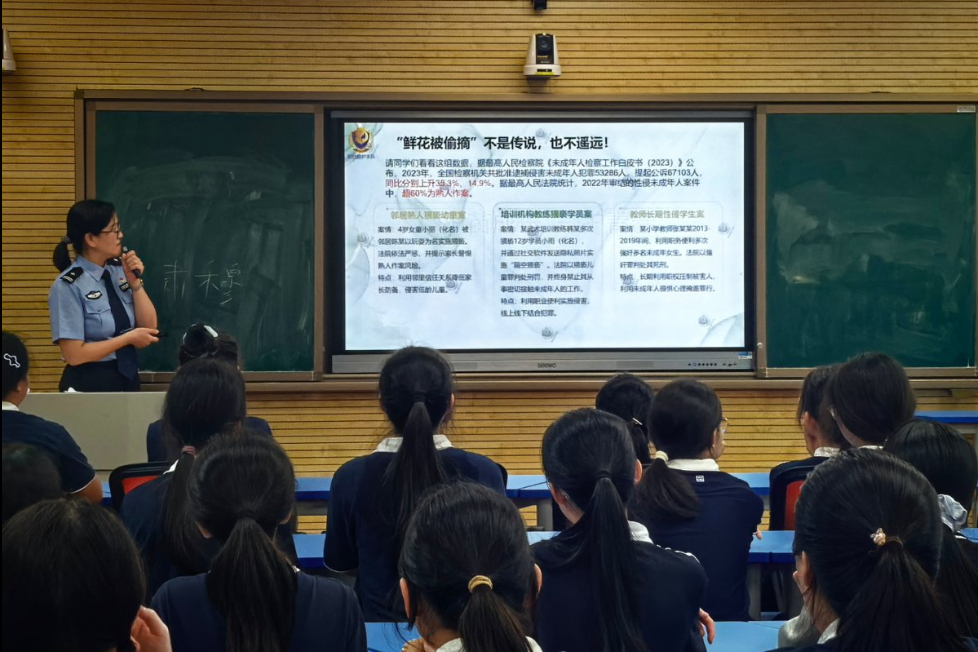 “鲜花被偷摘”不是传说，也不遥远！
请同学们看看这组数据，据最高人民检察院《未成年人检察工作白皮书（2023）》公
布，2023年，全国检察机关共批准逮捕侵害未成年人犯罪53286人，提起公诉67103人，
同比分别上升35.3%、14.9%。据最高人民法院统计，2022年审结的性侵未成年人案件
中，超60%为熟人作案。
邻居熟人猥亵幼童案
案情：4岁女童小丽（化名）被
邻居陈某以玩耍为名实施猥亵。
法院依法严惩，并提示家长警惕
熟人作案风险。
特点：利用邻里信任关系降低家
长防备，侵害低龄儿童。
培训机构教练猥亵学员案
案情：某武术培训教练韩某多次
猥亵12岁学员小雨（化名），
并通过社交软件发送隐私照片实
施“隔空猥亵”。法院以猥亵儿
童罪判处刑罚，并终身禁止其从
事密切接触未成年人的工作。
特点：利用职业便利实施侵害，
线上线下结合犯罪。
教师长期性侵学生案
案情：某小学教师张某某2013-
2019年间，利用职务便利多次
强奸多名未成年女生。法院以强
奸罪判处其死刑。
特点：长期利用职权压制被害人，
利用未成年人恐惧心理掩盖罪行。
seewo